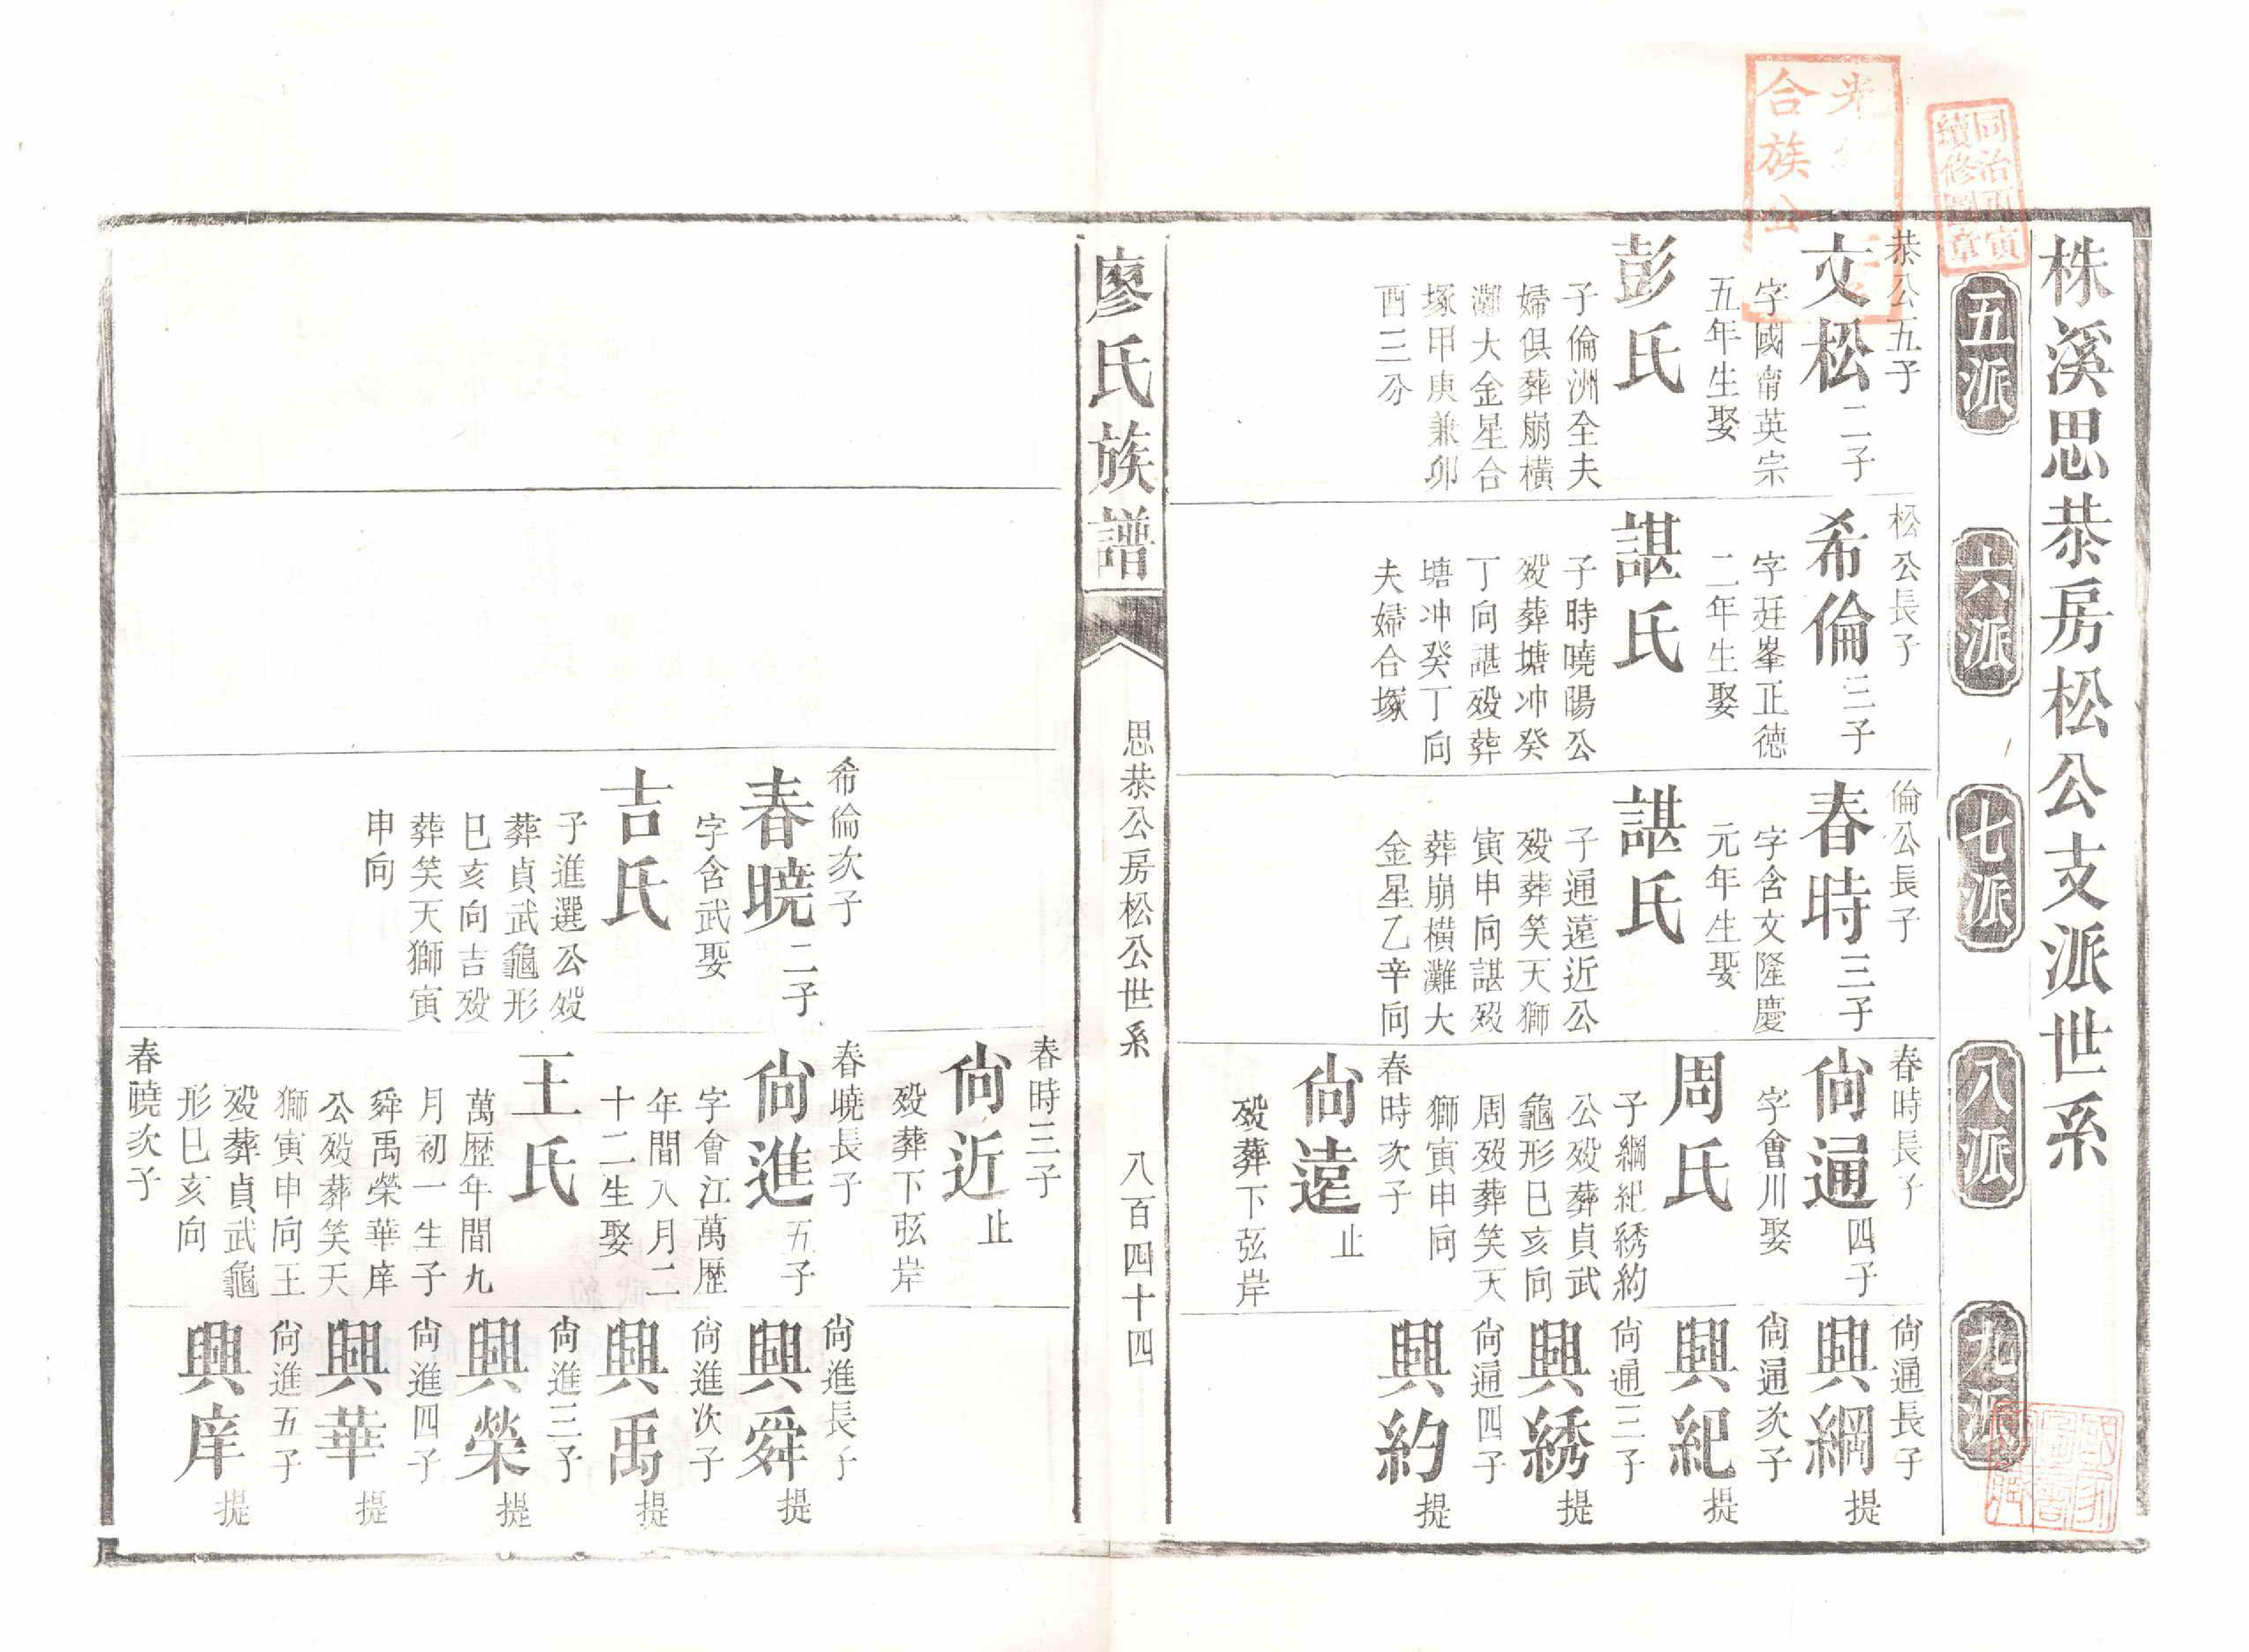 株溪思恭房松公支派世系
五派
六派
七派
八派
九派
恭公五子
文松二子
字國甯英宗
五年生娶
彭氏
子倫洲全夫
婦俱葬崩橫
灘大金星合
塚甲庚兼卯
酉三分
松公長子
希倫三子
字廷峯正德
二年生娶
諶氏
子時曉陽公
歿葬塘冲癸
丁向諶歿葬
塘冲癸丁向
夫婦合塚
倫公長子
春時三子
字含文隆慶
元年生娶
諶氏
子通遠近公
歿葬笑天獅
寅申向諶歿
葬崩橫灘大
金星乙辛向
春時長子
尙通四子
字會川娶
周氏
子綱紀綉約
公歿葬貞武
龜形巳亥向
周歿葬笑天
獅寅申向
春時次子
尙遠止
歿葬下弦岸
尙通長子
興綱提
尙通次子
興紀提
尙通三子
興綉提
尙通四子
興約提
廖氏族譜
思恭公房松公世系
八百四十四
希倫次子
春曉二子
字含武娶
吉氏
子進選公歿
葬貞武龜形
巳亥向吉歿
葬笑天獅寅
申向
春時三子
尙近止
歿葬下弦岸
春曉長子
尙進五子
字會江萬歷
年間八月二
十二生娶
王氏
萬歷年間九
月初一生子
舜禹榮華庠
公歿葬笑天
獅寅申向王
歿葬貞武龜
形巳亥向
春曉次子
尙進長子
興舜提
尙進次子
興禹提
尙進三子
興榮提
尙進四子
興華提
尙進五子
興庠提
同治丙寅
續修圖章
合族公